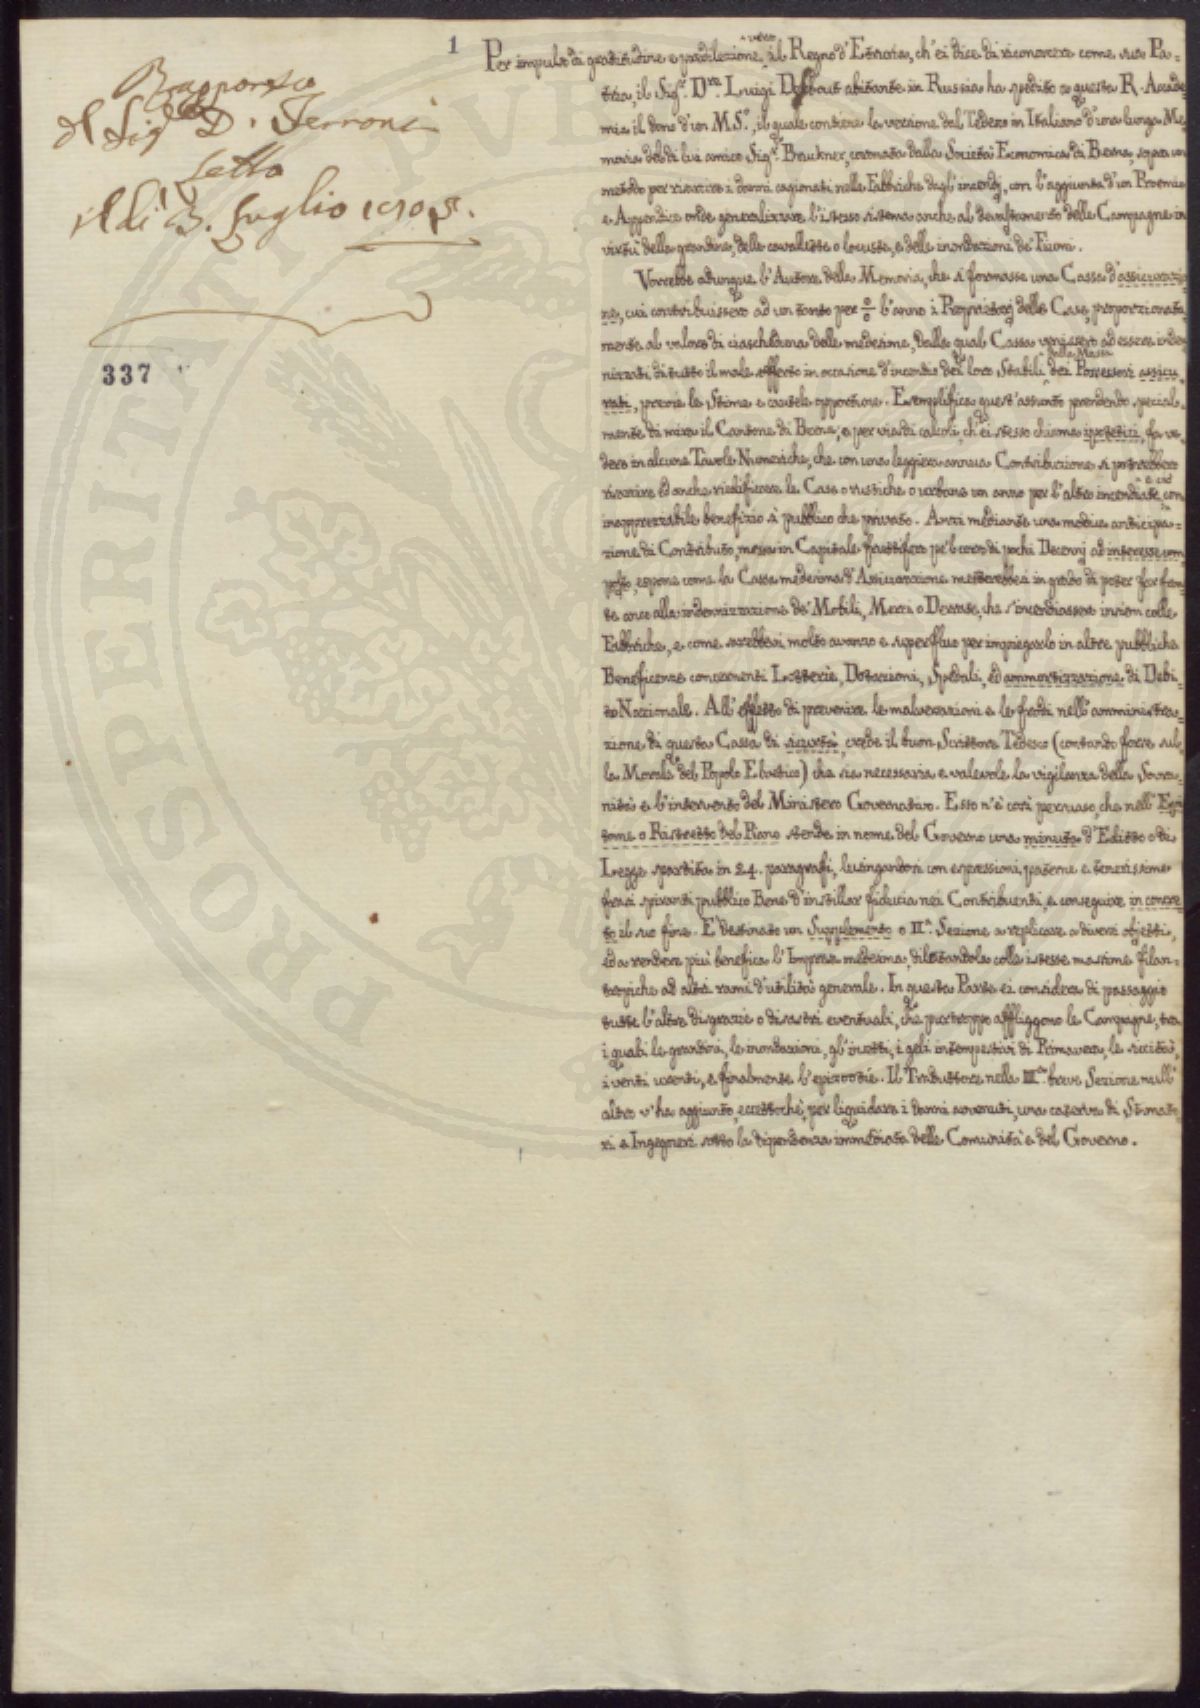 1
Rapporto
del Sig.re D. Ferroni
Letto
il dì 3. Luglio 1805.
337
PROSPERITATI PVB
Per impulso di gratitudine e predilezione verso il Regno d'Etruria, ch'ei dice di riconoscere come sua Pa-
tria, il Sig.r D.re Luigi abitante in Russia ha spedito a questa R. Accade
mia il dono d'un M.S.o, il quale contiene la versione dal Tedesco in Italiano d'una lunga Me
moria del di lui amico Sig.r Bruckner, coronata dalla Società Economica di Berna, sopra un
metodo per risarcire i danni cagionati nelle Fabbriche dagl'incendj, con l'aggiunta d'un Proemio
e Appendice onde generalizzare l'istesso sistema anche al devastamento delle Campagne in
virtù della grandine, delle cavallette o locuste, e delle inondazioni de' Fiumi.
Vorrebbe adunque l'Autore della Memoria, che si formasse una Cassa d'assicurazio
ne, cui contribuissero ad un tanto per % l'anno i Proprietarj delle Case, proporzionata
mente al valore di ciascheduna delle medesime, dalla qual Cassa venissero ad essere inden
nizzati di tutto il male sofferto in occasione d'incendio dei loro Stabili dalla Massa dei Possessori assicu
rati, previe le Stime e cautele opportune. Esemplifica quest'assunto prendendo special-
mente di mira il Cantone di Berna, e per via di calcoli, ch'ei stesso chiama ipotetici, fa ve-
dere in alcune Tavole Numeriche, che con una leggiera annua Contribuzione si potrebbero
risarcire ed anche riedificare le Case o rustiche o urbane un anno per l'altro incendiate, e ciò con
inapprezzabile benefizio sì pubblico che privato. Anzi mediante una modica anticipa-
zione di Contributo, messa in Capitale fruttifero pe'l corso di pochi Decennj ad interesse com
posto, espone come la Cassa medesima d'Assicurazione metterebbesi in grado di poter far fron
te anco alla indennizzazione de' Mobili, Merci o Derrate, che s'incendiassero insiem colle
Fabbriche, e come sarebbevi molto avanzo e superfluo per impiegarlo in altre pubbliche
Beneficenze concernenti Lotterie, Dotazioni, Spedali, ed ammortizzazione di Debi-
to Nazionale. All'effetto di prevenire le malversazioni e le frodi nell'amministra-
zione di questa Cassa di sicurtà, crede il buon Scrittore Tedesco (contando forse sul-
la Morale del Popolo Elvetico) che sia necessaria e valevole la vigilanza della Sovra-
nità e l'intervento del Ministero Governativo. Esso n'è così persuaso, che nell'Epi
tome o Ristretto del Piano stende in nome del Governo una minuta d'Editto o di
Legge spartita in 24. paragrafi, lusingandosi con espressioni paterne e tenerissime
frasi spiranti pubblico Bene d'instillar fiducia nei Contribuenti, e conseguire in concre
to il suo fine. È destinato un Supplemento o II.a Sezione a replicare a diversi objetti,
ed a rendere più benefica l'Impresa medesima, dilatandola colle istesse massime filan-
tropiche ad altri rami d'utilità generale. In questa Parte ei considera di passaggio
tutte l'altre disgrazie o disastri eventuali, che pur troppo affliggono le Campagne, tra
i quali le grandini, le inondazioni, gl'insetti, i geli intempestivi di Primavera, le siccità,
i venti urenti, e finalmente l'epizootie. Il Traduttore nella III.a breve Sezione null'
altro v'ha aggiunto, eccettoché, per liquidare i danni avvenuti, una caterva di Stimato
ri e Ingegneri sotto la dipendenza immediata delle Comunità e del Governo.